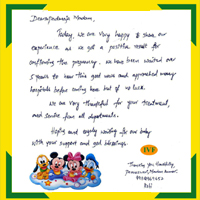 Dear Madam,
Today, we are very happy to share our
experience as we got a positive result for
confirming the pregnancy. We have been waited over
5 years to hear this good news and approached many
hospitals before coming here but of no luck.
We are very thankful for your treatment,
and service from all departments.
Hoping and eagerly waiting for our baby
with your support and god blessings.
IVF
Thanking you